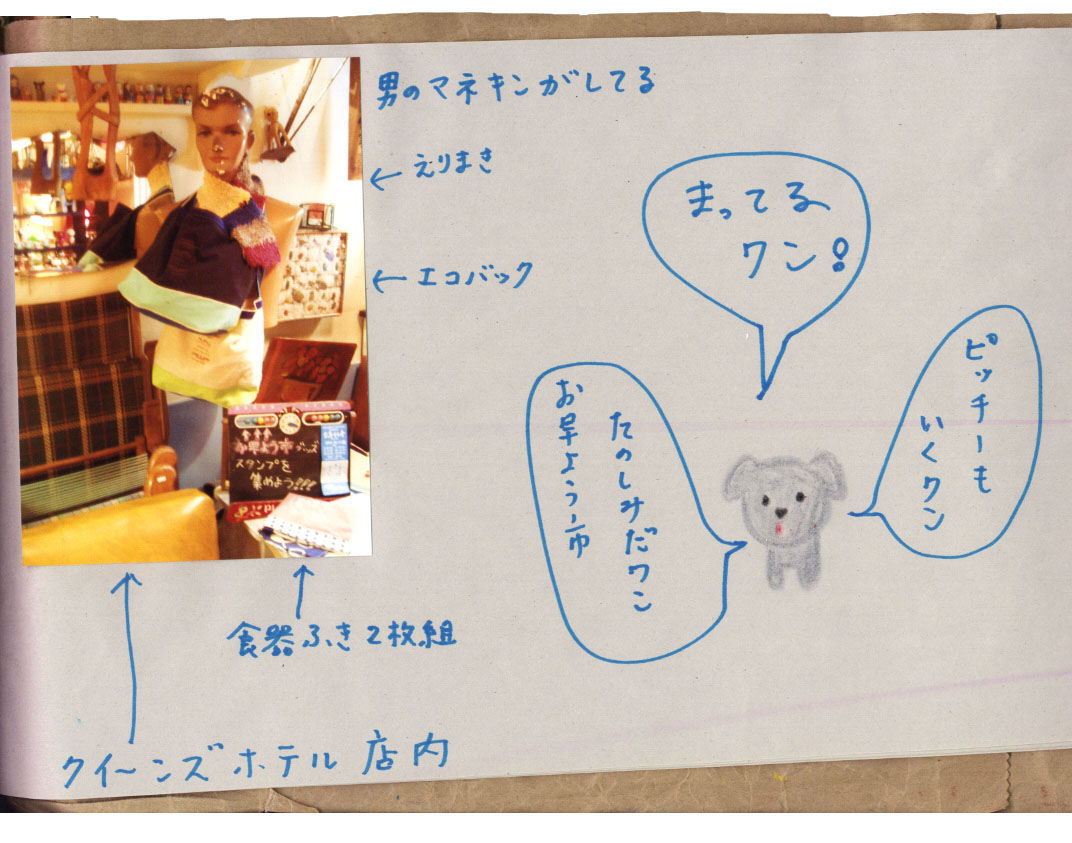 男のマネキンがしてる
← えりまき
← エコバック
お早よう市グッズ
スタンプを
集めよう!!!
食器ふき2枚組
クイーンズホテル 店内
まってる
ワン!
ピッチーも
いくワン
お早よう市
たのしみだワン